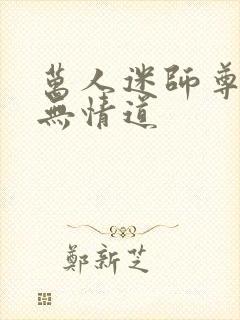 萬人迷師尊
無情道
鄭新芝